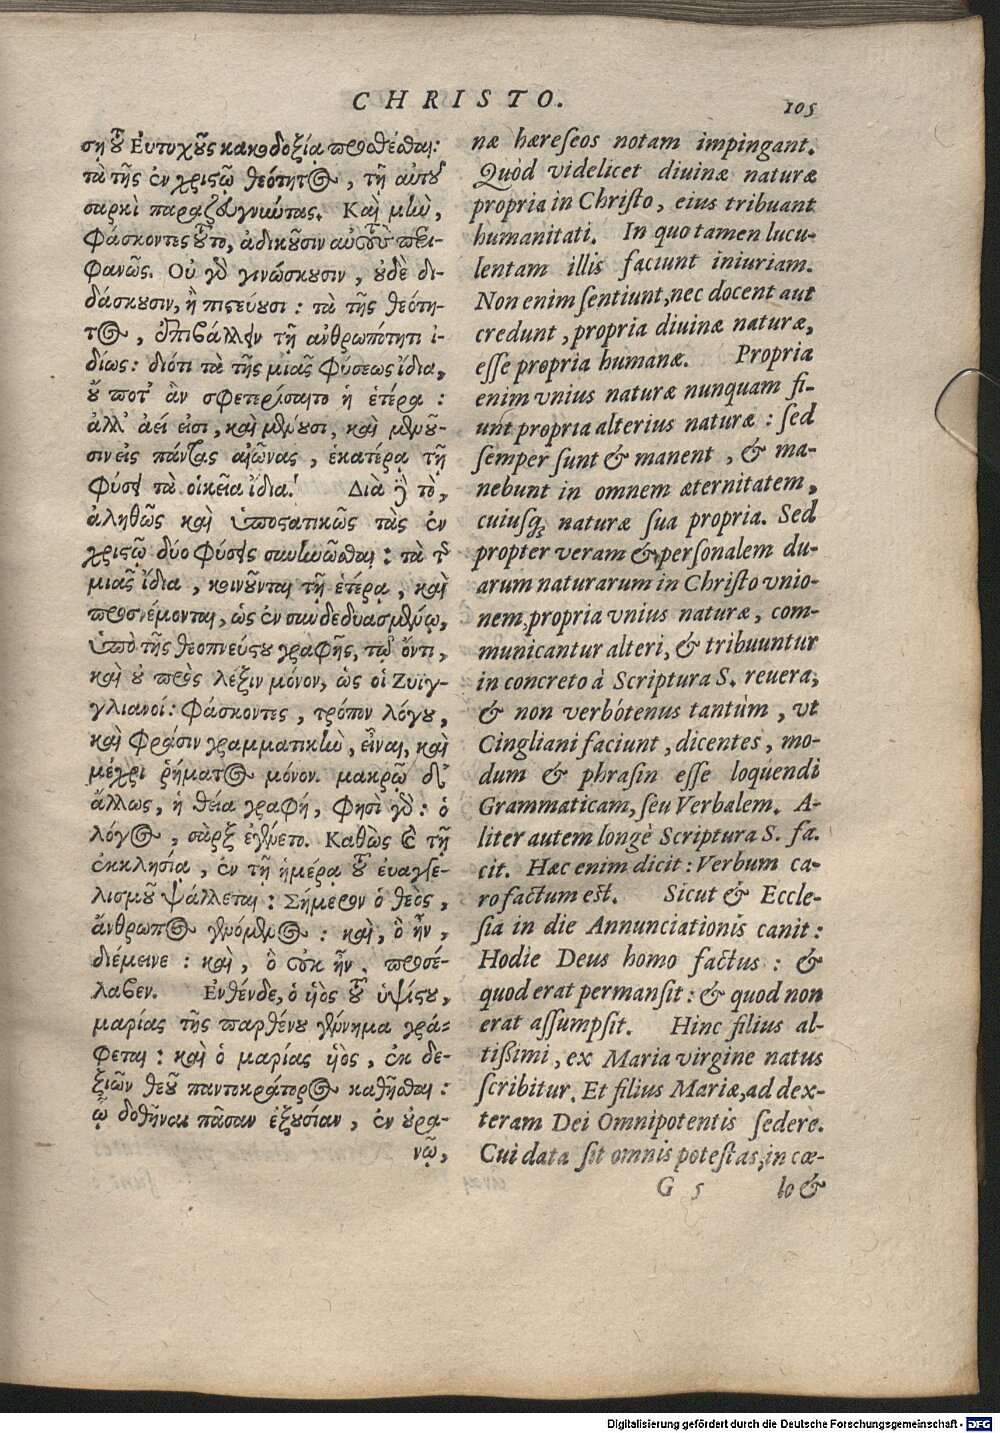 CHRISTO.
105
ση τοῦ Εὐτυχοῦς κακοδοξία προσθέσθαι:
τὰ τῆς ἐν χριστῷ θεότητος, τῇ αὐτοῦ
σαρκὶ παραζευγνιώτας. Καὶ μὴν,
φάσκοντες τοῦτο, ἀδικοῦσιν αὐτοὺς περι-
φανῶς. Οὐ γὰρ γινώσκουσιν, οὐδὲ δι-
δάσκουσιν, ἢ πιστεύουσι: τὰ τῆς θεότη-
τος, ἐπιβάλλειν τῇ ἀνθρωπότητι ἰ-
δίως: διότι τὰ τῆς μιᾶς φύσεως ἴδια,
οὔ ποτ' ἂν σφετερίσαιτο ἡ ἑτέρα:
ἀλλ' ἀεί εἰσι, καὶ μένουσι, καὶ μενοῦ-
σιν εἰς πάντας αἰῶνας, ἑκατέρᾳ τῇ
φύσει τὰ οἰκεῖα ἴδια. Διὰ δὲ τὸ,
ἀληθῶς καὶ ὑποστατικῶς τὰς ἐν
χριστῷ δύο φύσεις συνηνῶσθαι: τὰ τῆς
μιᾶς ἴδια, κοινοῦνται τῇ ἑτέρᾳ, καὶ
προσνέμονται, ὡς ἐν συνδεδυασμένῳ,
ὑπὸ τῆς θεοπνεύστου γραφῆς, τῷ ὄντι,
καὶ οὐ πρὸς λέξιν μόνον, ὡς οἱ Ζυϊγ-
γλιανοί: φάσκοντες, τρόπον λόγου,
καὶ φράσιν γραμματικὴν, εἶναι, καὶ
μέχρι ῥήματος μόνον. μακρῷ δ'
ἄλλως, ἡ θεία γραφή, φησὶ γὰρ: ὁ
λόγος, σὰρξ ἐγένετο. Καθὼς καὶ τῇ
ἐκκλησίᾳ, ἐν τῇ ἡμέρᾳ τοῦ εὐαγγε-
λισμοῦ ψάλλεται: Σήμερον ὁ θεὸς,
ἄνθρωπος γενόμενος: καὶ, ὃ ἦν,
διέμεινε: καὶ, ὃ οὐκ ἦν, προσέ-
λαβεν. Ἐνθένδε, ὁ υἱὸς τοῦ ὑψίστου,
μαρίας τῆς παρθένου γέννημα γρά-
φεται: καὶ ὁ μαρίας υἱὸς, ἐκ δε-
ξιῶν θεοῦ παντοκράτορος καθῆσθαι:
ᾧ δοθῆναι πᾶσαν ἐξουσίαν, ἐν οὐρα-
νῷ,
næ hæreseos notam impingant.
Quòd videlicet diuinæ naturæ
propria in Christo, eius tribuant
humanitati. In quo tamen lucu-
lentam illis faciunt iniuriam.
Non enim sentiunt, nec docent aut
credunt, propria diuinæ naturæ,
esse propria humanæ. Propria
enim vnius naturæ nunquam fi-
unt propria alterius naturæ: sed
semper sunt & manent, & ma-
nebunt in omnem æternitatem,
cuiusq; naturæ sua propria. Sed
propter veram & personalem du-
arum naturarum in Christo vnio-
nem, propria vnius naturæ, com-
municantur alteri, & tribuuntur
in concreto à Scriptura S. reuera,
& non verbótenus tantùm, vt
Cingliani faciunt, dicentes, mo-
dum & phrasin esse loquendi
Grammaticam, seu Verbalem. A-
liter autem longè Scriptura S. fa-
cit. Hæc enim dicit: Verbum ca-
ro factum est. Sicut & Eccle-
sia in die Annunciationis canit:
Hodie Deus homo factus: &
quod erat permansit: & quod non
erat assumpsit. Hinc filius al-
tissimi, ex Maria virgine natus
scribitur. Et filius Mariæ, ad dex-
teram Dei Omnipotentis sedere.
Cui data sit omnis potestas, in cœ-
G 5
lo &
Digitalisierung gefördert durch die Deutsche Forschungsgemeinschaft - DFG